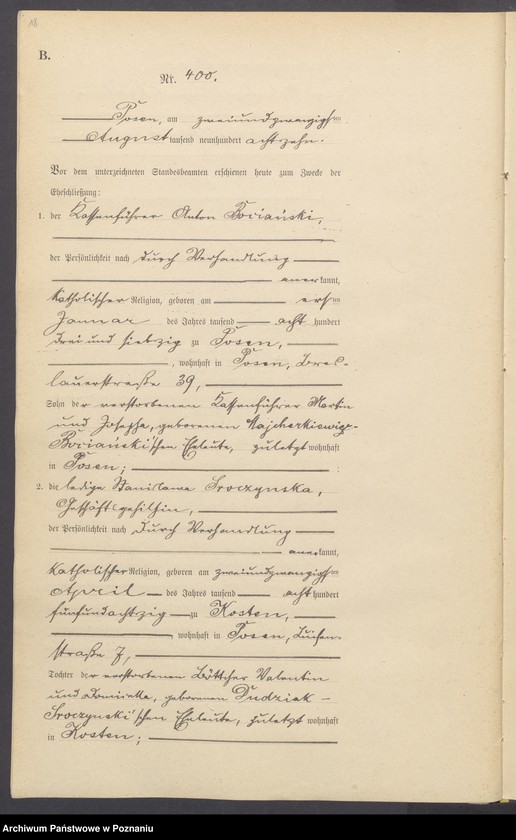 18
B.
Nr. 400.
Posen, am zweiundzwanzigsten
August tausend neunhundert achtzehn.
Vor dem unterzeichneten Standesbeamten erschienen heute zum Zwecke der
Eheschließung:
1. der Kassenführer Anton Bociański,
der Persönlichkeit nach durch Verhandlung
anerkannt,
katholischer Religion, geboren am ersten
Januar des Jahres tausend acht hundert
drei und siebzig zu Posen,
, wohnhaft in Posen, Bres-
lauerstraße 39,
Sohn der verstorbenen Kassenführer Martin
und Josepha, geborenen Majcherkiewicz-
Bociański'schen Eheleute, zuletzt wohnhaft
in Posen;
2. die ledige Stanislawa Sroczynska,
Geschäftsgehilfin,
der Persönlichkeit nach durch Verhandlung
anerkannt,
katholischer Religion, geboren am zweiundzwanzigsten
April des Jahres tausend acht hundert
fünfundachtzig zu Kosten,
, wohnhaft in Posen, Luisen-
straße 7,
Tochter der verstorbenen Böttcher Valentin
und Dominika, geborenen Dudziak-
Sroczynski'schen Eheleute, zuletzt wohnhaft
in Kosten;
Archiwum Państwowe w Poznaniu